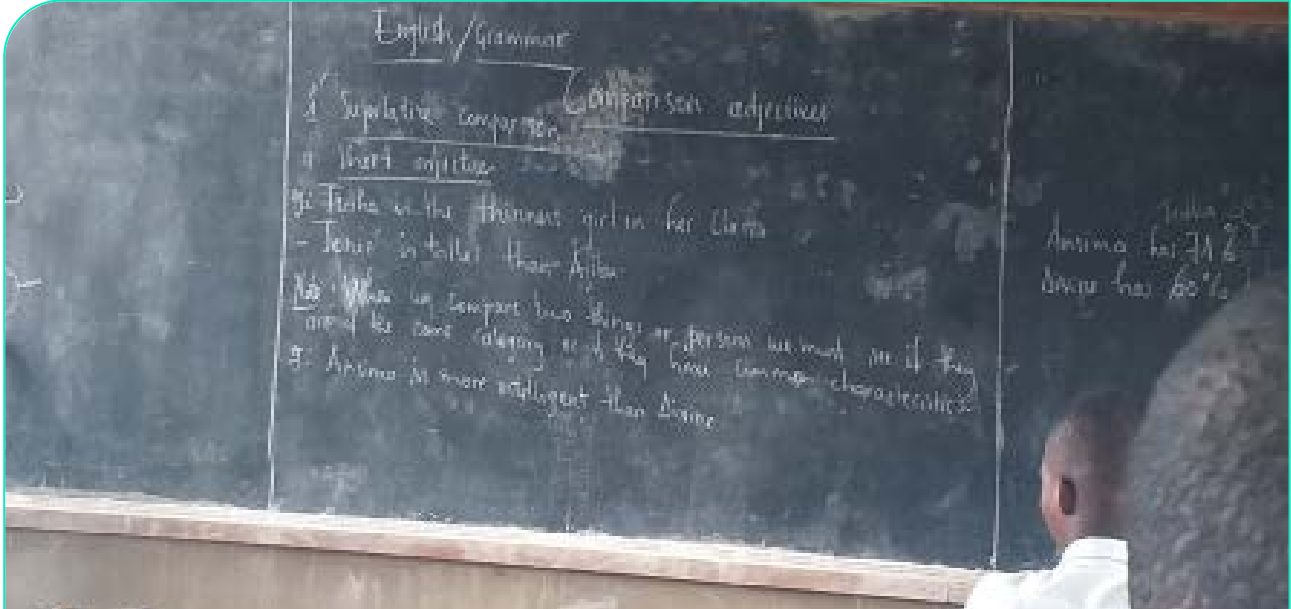 English/Grammar
Comparison adjectives
1° Superlative comparison
a Short adjective
eg: is the thinnest girl in her class
- is taller than
Nb: When we compare two things or person we must see if they
are of the same category or if they have common characteristics.
eg: Ansima is more intelligent than Divine
Ansima has 71
has 60%